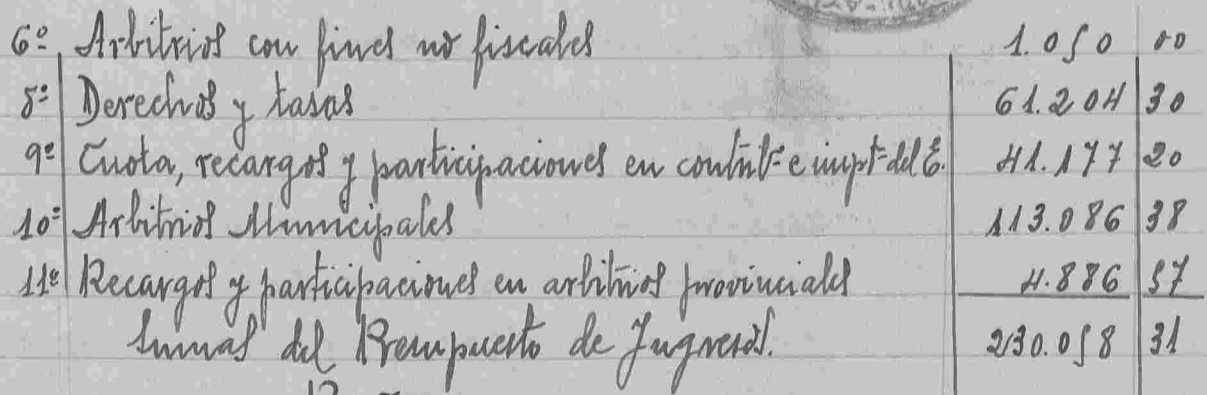 6º Arbitrios con fines no fiscales 1.050 00
8º Derechos y tasas 61.204 30
9º Cuota, recargos y participaciones en contrbs e impts del E. 41.177 20
10º Arbitrios Municipales 113.086 38
11º Recargos y participaciones en arbitrios provinciales 4.886 37
Sumas del Presupuesto de Ingresos. 230.058 31